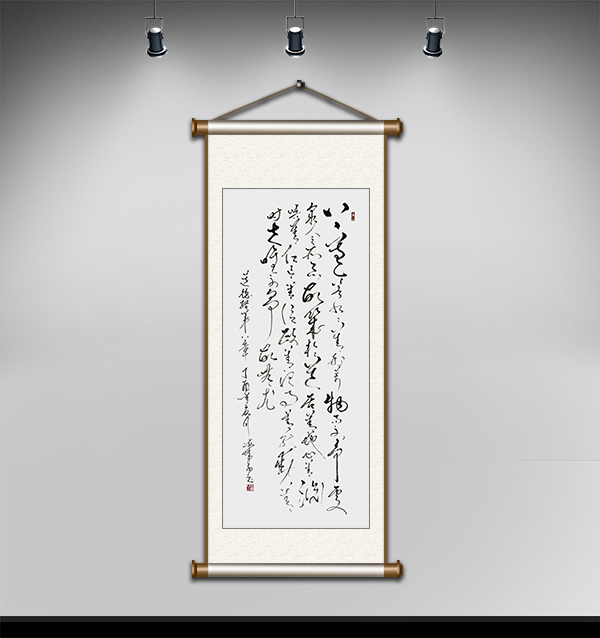 上善若水水善利万物而不争处
众人之所恶故几于道居善地心善渊
与善仁言善信政善治事善能动善
时夫唯不争故无尤
道德经第八章丁酉年